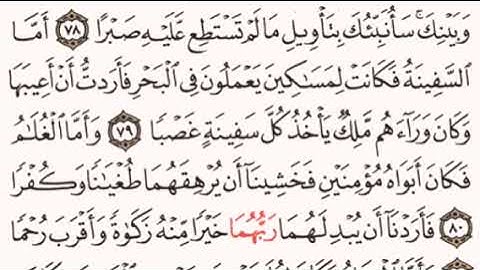 وَبَيْنِكَ ۚ سَأُنَبِّئُكَ بِتَأْوِيلِ مَا لَمْ تَسْتَطِع عَّلَيْهِ صَبْرًا ٧٨ أَمَّا
ٱلسَّفِينَةُ فَكَانَتْ لِمَسَـٰكِينَ يَعْمَلُونَ فِى ٱلْبَحْرِ فَأَرَدتُّ أَنْ أَعِيبَهَا
وَكَانَ وَرَآءَهُم مَّلِكٌ يَأْخُذُ كُلَّ سَفِينَةٍ غَصْبًا ٧٩ وَأَمَّا ٱلْغُلَـٰمُ
فَكَانَ أَبَوَاهُ مُؤْمِنَيْنِ فَخَشِينَآ أَن يُرْهِقَهُمَا طُغْيَـٰنًا وَكُفْرًا
٨٠ فَأَرَدْنَآ أَن يُبْدِلَهُمَا رَبُّهُمَا خَيْرًا مِّنْهُ زَكَوٰةً وَأَقْرَبَ رُحْمًا